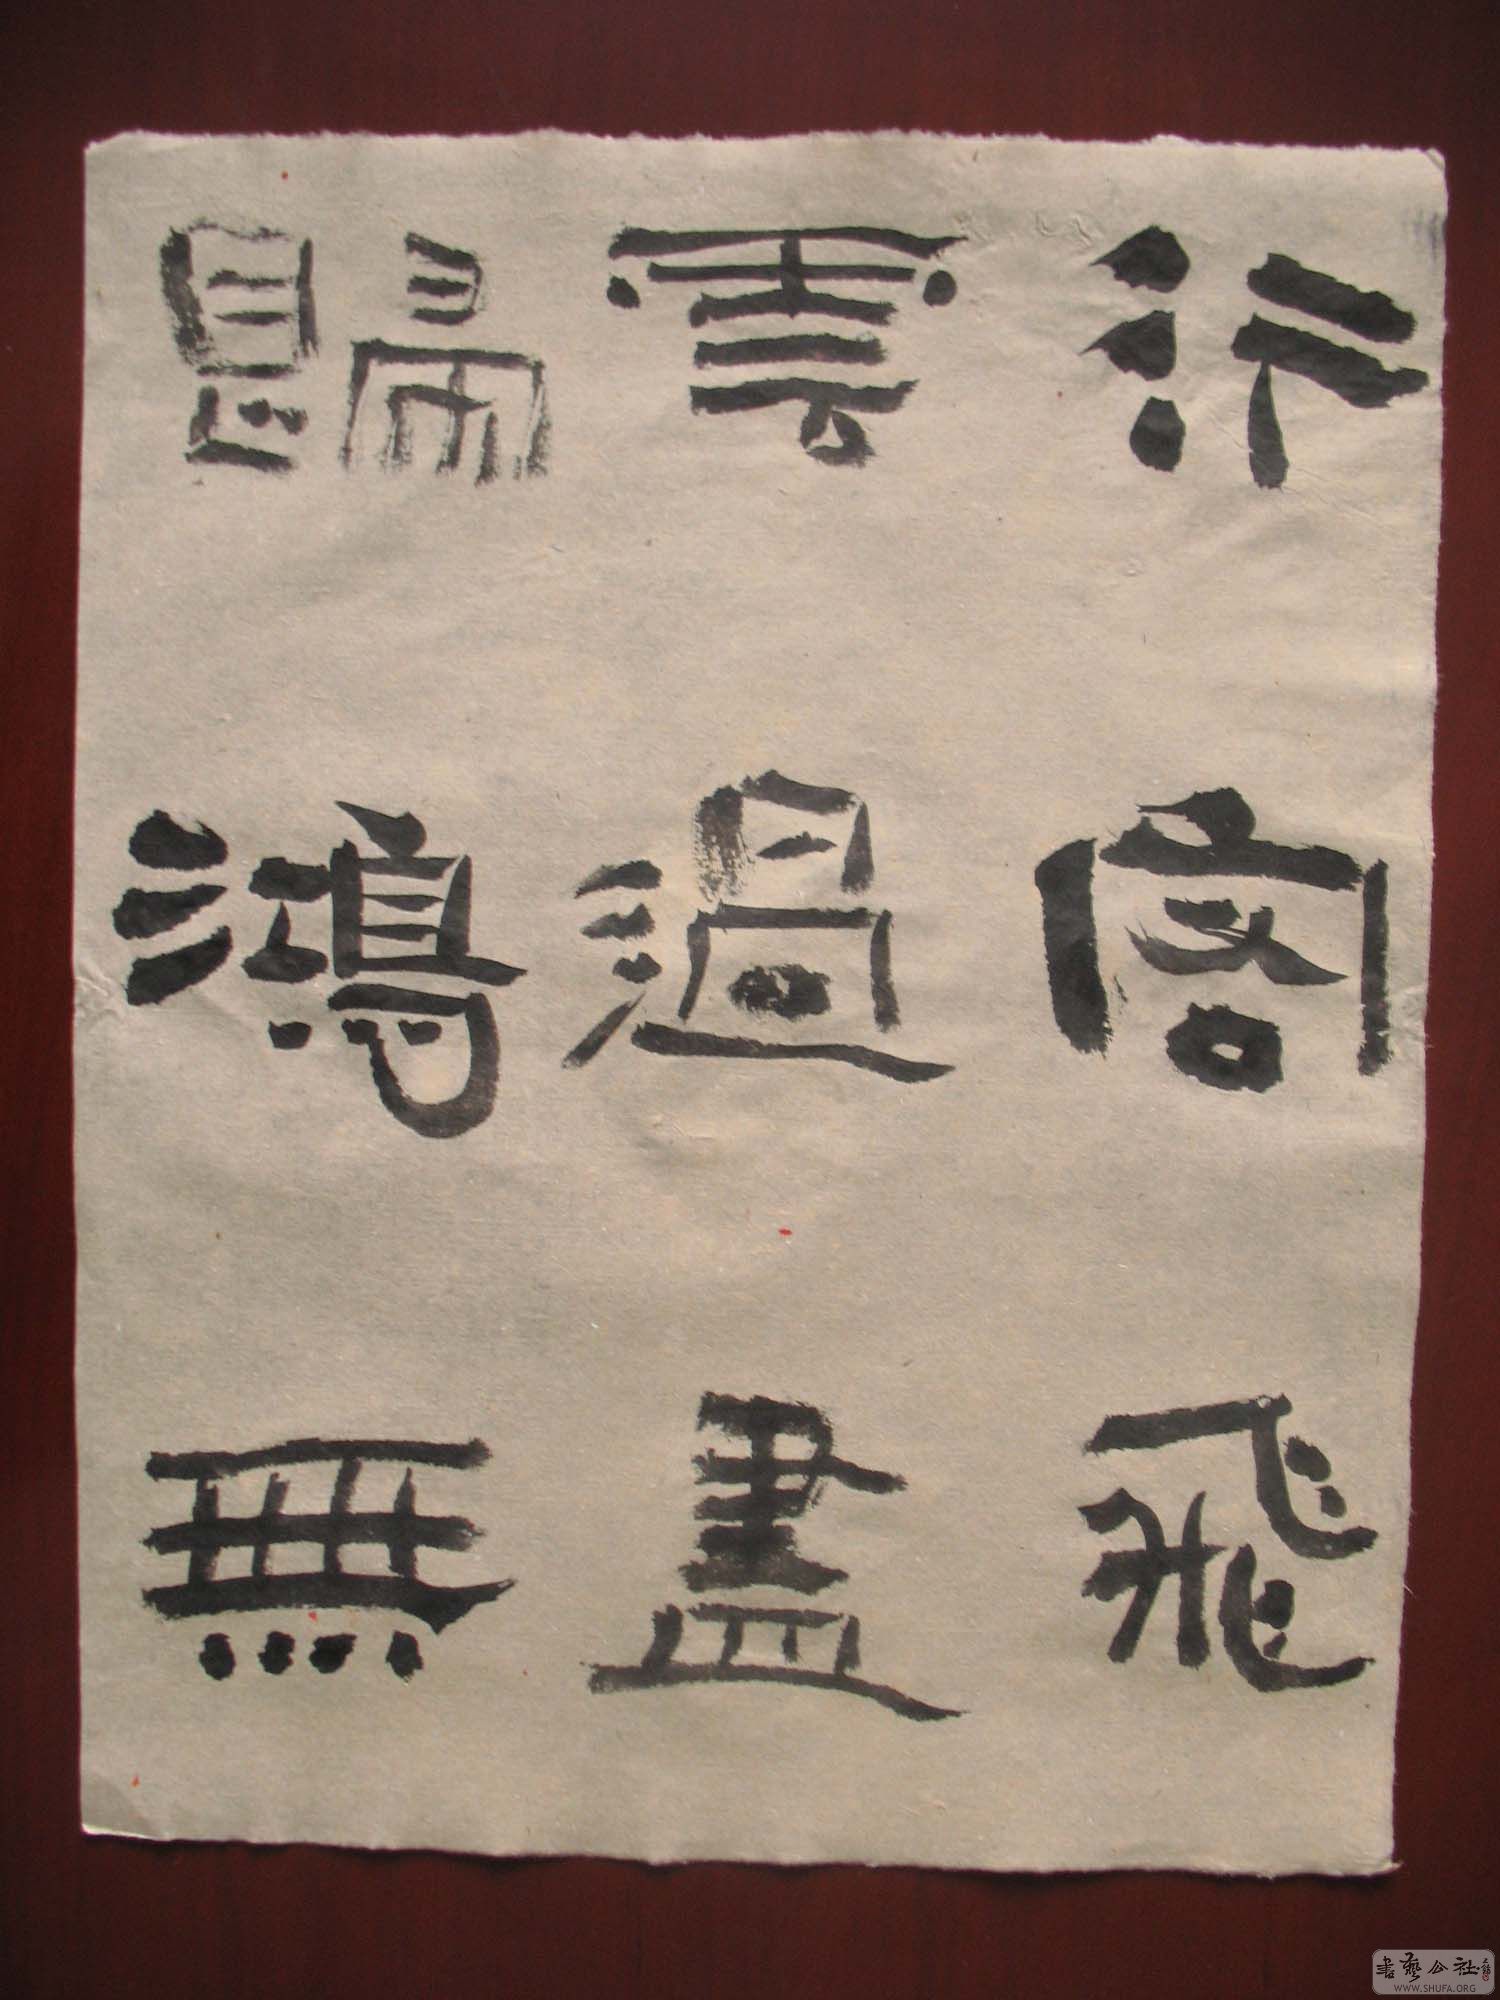 行客飛
雲過盡
歸鴻無
書藝公社
WWW.SHUFA.ORG